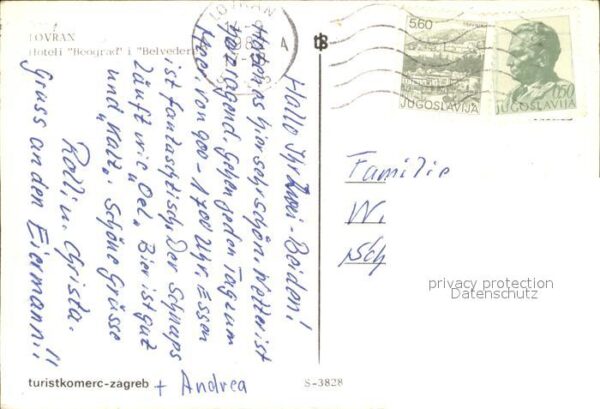 LOVRAN
Hoteli "Beograd" i "Belvedere"
LOVRAN
5.60
JUGOSLAVIJA
0.50
JUGOSLAVIJA
Hallo Ihr Zwei-Beiden!
Haben es hier sehr schön, Wetter ist
hervorragend. Gehen jeden Tag zum
Meer von 900-1700 Uhr. Essen
ist fantastisch. Der Schnaps
läuft wie "Oel" Bier ist gut
und "Kalt". Schöne Grüsse
Rolli u. Christa.
Gruss an den Eiermann!!
+ Andrea
Familie
W.
Sch
privacy protection
Datenschutz
turistkomerc-zagreb
S-3828